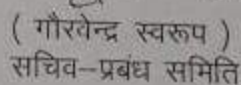 ( गौरवेन्द्र स्वरूप )
सचिव-प्रबंध समिति